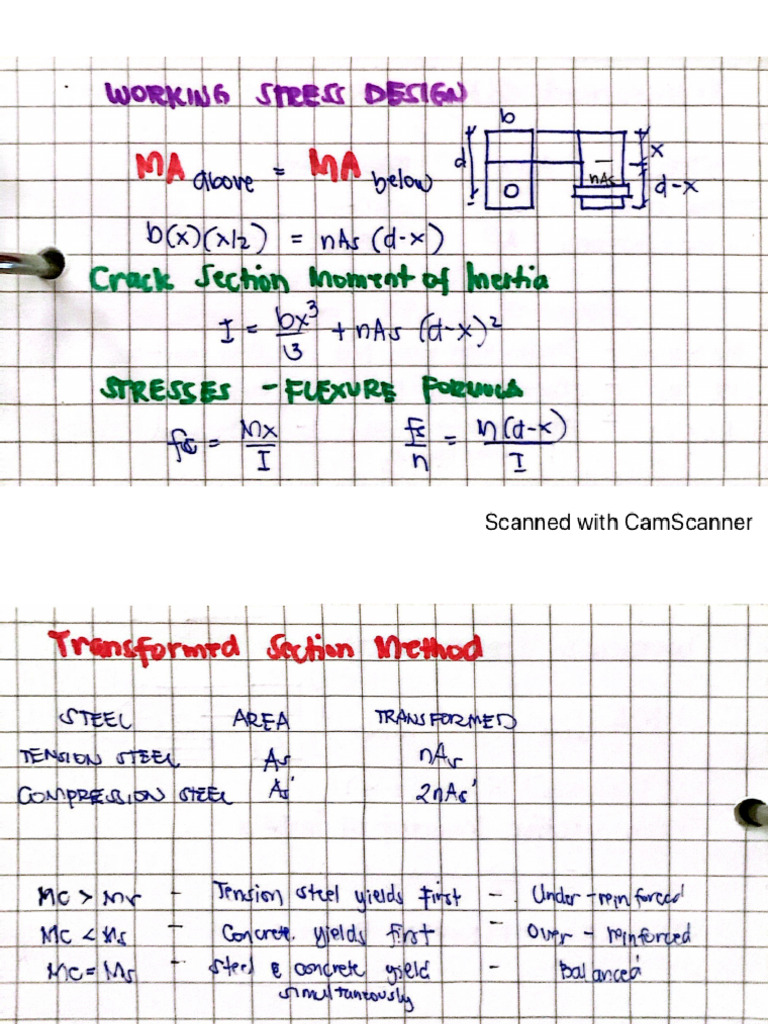 WORKING STRESS DESIGN
b
MA above = MA below
d
x
nAs
d-x
b(x)(x/2) = nAs (d-x)
Crack Section Moment of Inertia
I = bx³/3 + nAs (d-x)²
STRESSES - FLEXURE FORMULA
fc = Mx/I
fs/n = M(d-x)/I
Scanned with CamScanner
Transformed Section Method
STEEL AREA TRANSFORMED
TENSION STEEL As nAs
COMPRESSION STEEL As' 2nAs'
Mc > Ms - Tension steel yields first - Under-reinforced
Mc < Ms - Concrete yields first - Over-reinforced
Mc = Ms - Steel & concrete yield simultaneously - Balanced